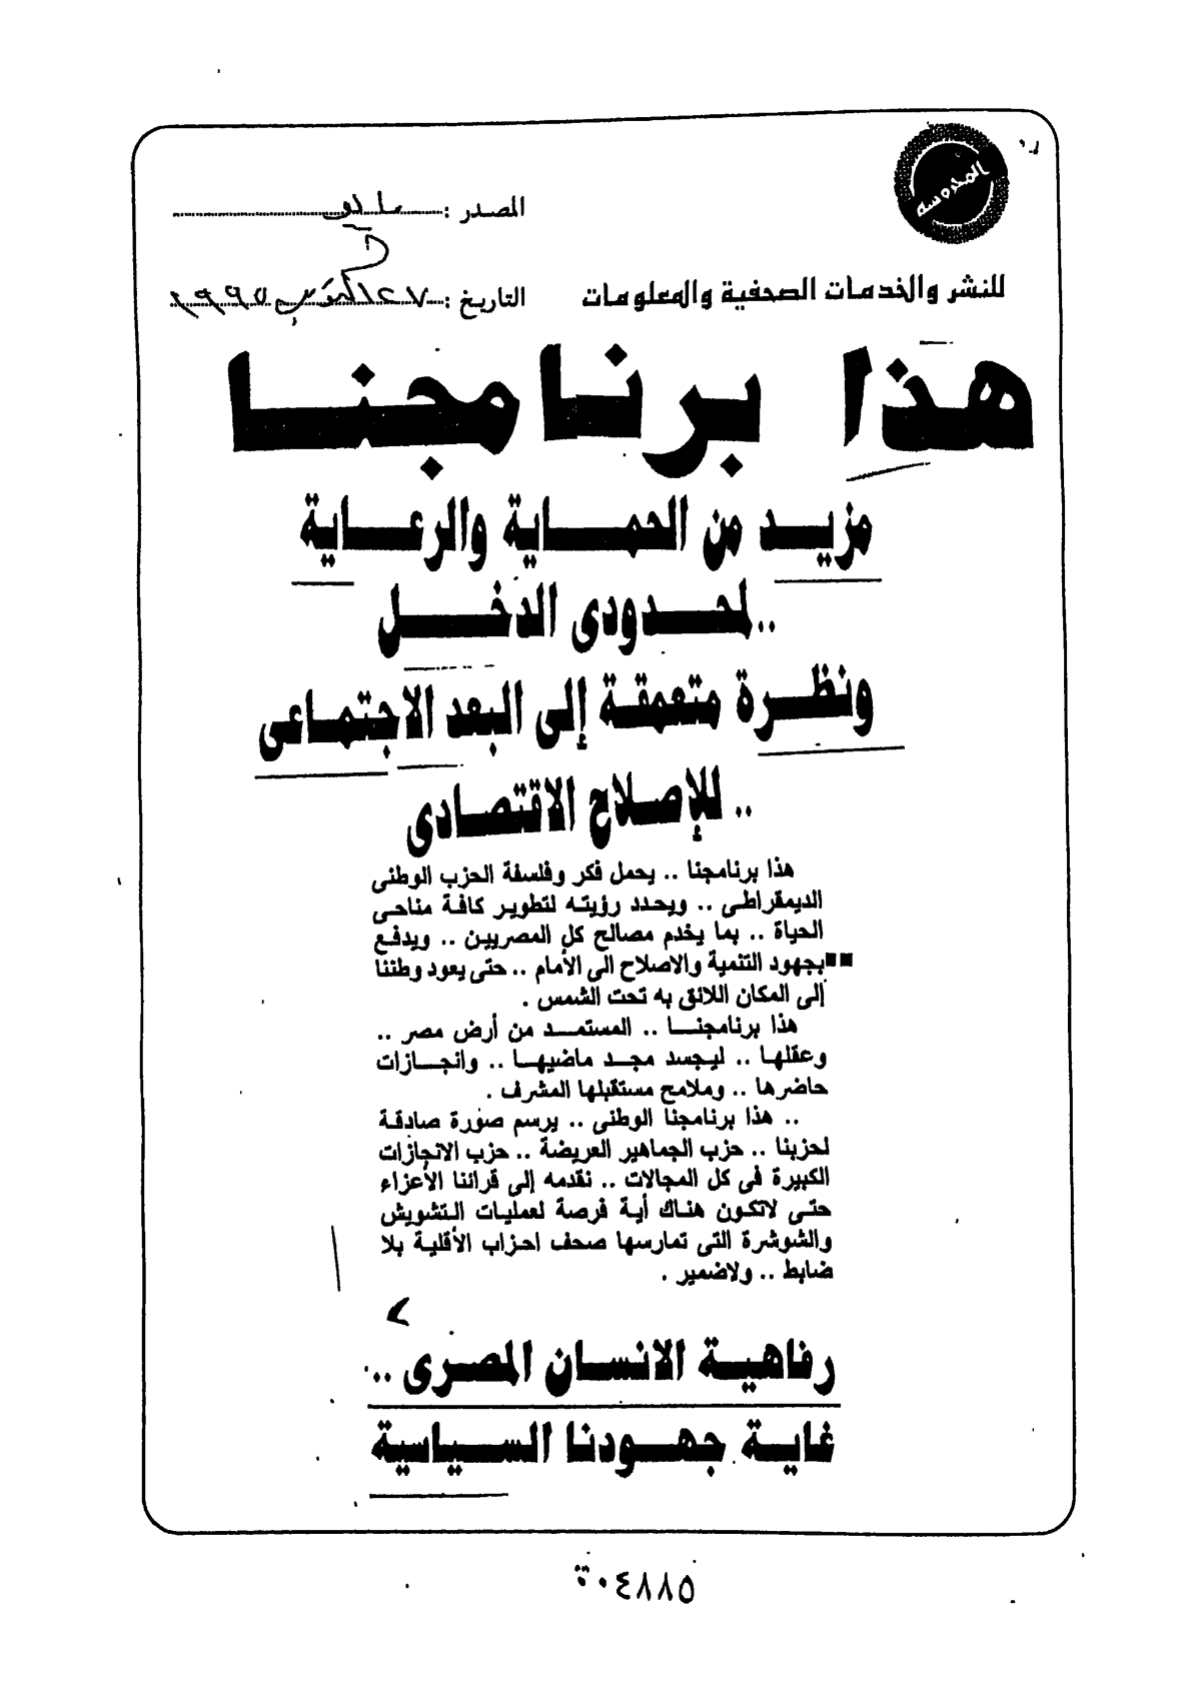 المحروسة
المصدر : مايو
للنشر والخدمات الصحفية والمعلومات
التاريخ : ٢٧ اكتوبر ١٩٩٥
هذا برنامجنا
مزيد من الحماية والرعاية
.. لمحدودى الدخل
ونظرة متعمقة إلى البعد الاجتماعى
.. للإصلاح الاقتصادى
هذا برنامجنا .. يحمل فكر وفلسفة الحزب الوطنى
الديمقراطى .. ويحدد رؤيته لتطوير كافة مناحى
الحياة .. بما يخدم مصالح كل المصريين .. ويدفع
■■ بجهود التنمية والاصلاح الى الأمام .. حتى يعود وطننا
إلى المكان اللائق به تحت الشمس .
هذا برنامجنا .. المستمد من أرض مصر ..
وعقلها .. ليجسد مجد ماضيها .. وانجازات
حاضرها .. وملامح مستقبلها المشرف .
.. هذا برنامجنا الوطنى .. يرسم صورة صادقة
لحزبنا .. حزب الجماهير العريضة .. حزب الانجازات
الكبيرة فى كل المجالات .. نقدمه إلى قرائنا الأعزاء
حتى لاتكون هناك أية فرصة لعمليات التشويش
والشوشرة التى تمارسها صحف احزاب الأقلية بلا
ضابط .. ولاضمير .
رفاهية الانسان المصرى ..
غاية جهودنا السياسية
٠٤٨٨٥